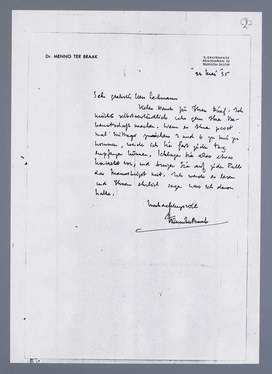 Dr. MENNO TER BRAAK
'S-GRAVENHAGE
TELEFOON
Mai '35
Sehr geehrter Herr
Vielen Dank für Ihren Brief. Ich
möchte selbstverständlich sehr gern Ihre Be-
kanntschaft machen; wenn es Ihnen passt
mal Mittags zwischen und 6 zu mir zu
kommen, werde ich Sie fast jeden Tag
empfangen können. Schlagen Sie also etwas
vor, und bringen Sie auf jeden Fall
das Manuskript mit. Ich werde es lesen
und Ihnen ehrlich sagen was ich davon
halte.
Hochachtungsvoll
Menno ter Braak